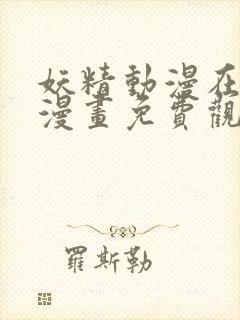 妖精動漫在
漫畫免費觀
羅斯勒